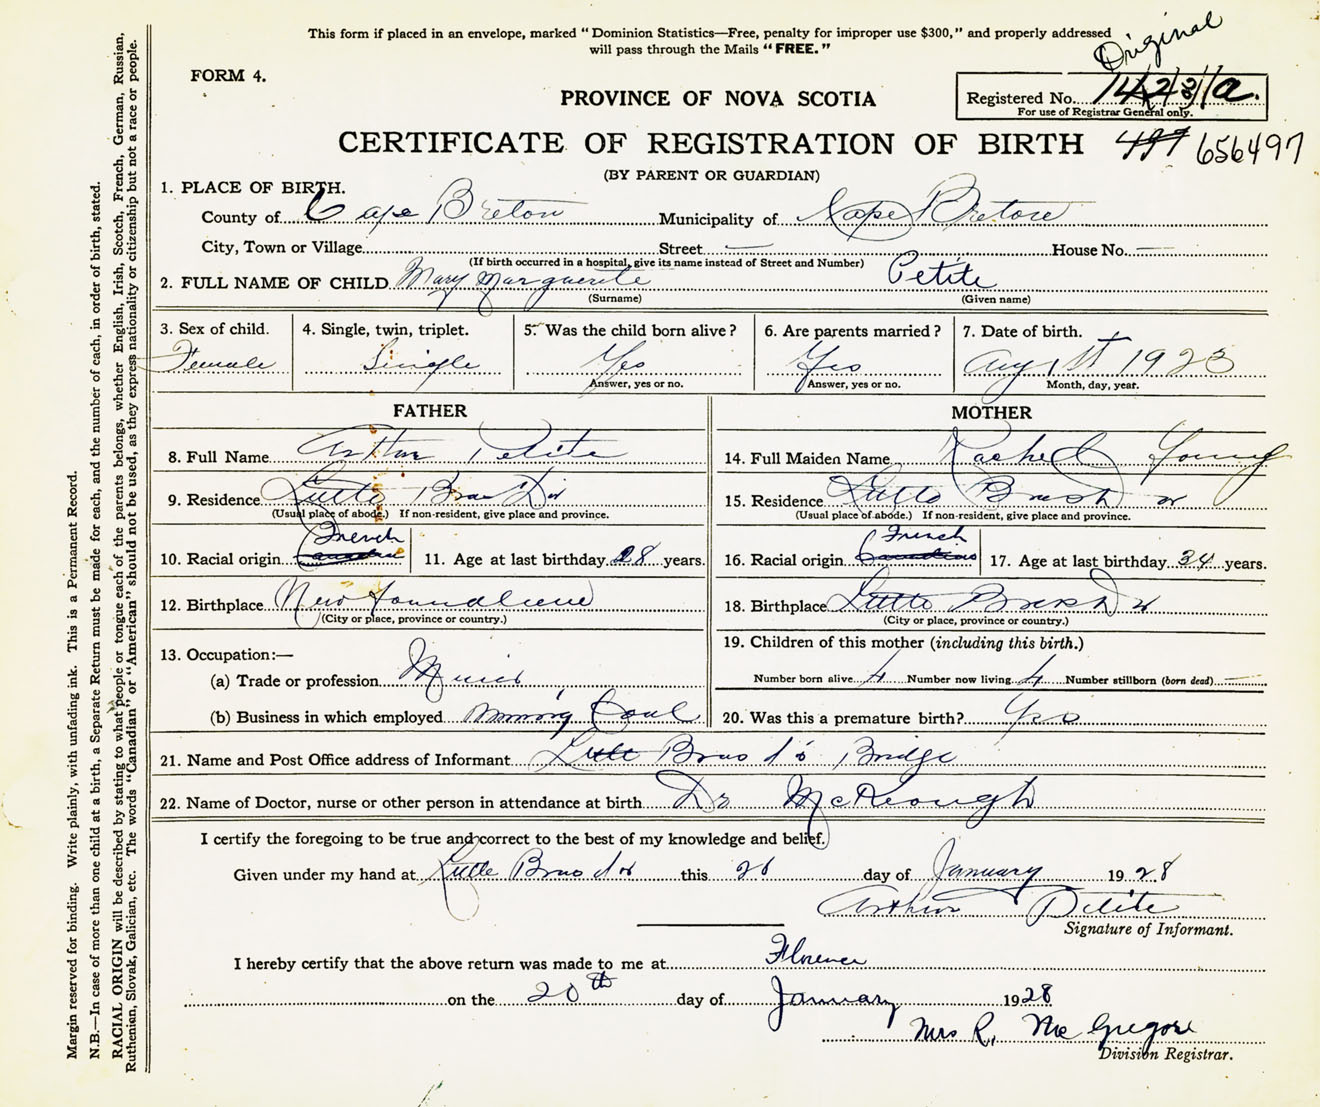 This form if placed in an envelope, marked "Dominion Statistics—Free, penalty for improper use $300," and properly addressed
will pass through the Mails "FREE."
Original
FORM 4.
PROVINCE OF NOVA SCOTIA
Registered No.
For use of Registrar General only.
CERTIFICATE OF REGISTRATION OF BIRTH 497 656497
(BY PARENT OR GUARDIAN)
1. PLACE OF BIRTH.
County of Cape Breton Municipality of Cape Breton
City, Town or Village Street — House No. —
(If birth occurred in a hospital, give its name instead of Street and Number)
2. FULL NAME OF CHILD Mary Marguerite Petite
(Surname) (Given name)
3. Sex of child. 4. Single, twin, triplet. 5. Was the child born alive? 6. Are parents married? 7. Date of birth.
Female Single Yes Yes Aug 1st 1923
Answer, yes or no. Answer, yes or no. Month, day, year.
FATHER MOTHER
8. Full Name Arthur Petite 14. Full Maiden Name Rachel Young
9. Residence Little Bras D'or 15. Residence Little Bras d or
(Usual place of abode.) If non-resident, give place and province. (Usual place of abode.) If non-resident, give place and province.
French French
10. Racial origin Canadian 11. Age at last birthday 28 years. 16. Racial origin Canadian 17. Age at last birthday 34 years.
12. Birthplace New foundland 18. Birthplace Little Bras d or
(City or place, province or country.) (City or place, province or country.)
13. Occupation:— 19. Children of this mother (including this birth.)
(a) Trade or profession Miner Number born alive 4 Number now living 4 Number stillborn (born dead) —
(b) Business in which employed Mining Coal 20. Was this a premature birth? Yes
21. Name and Post Office address of Informant Little Bras d'or Bridge
22. Name of Doctor, nurse or other person in attendance at birth Dr McKeough
I certify the foregoing to be true and correct to the best of my knowledge and belief.
Given under my hand at Little Bras d or this 20 day of January 1928
Arthur Petite
Signature of Informant.
I hereby certify that the above return was made to me at Florence
on the 20th day of January 1928
Mrs R. McGregor
Division Registrar.
Margin reserved for binding. Write plainly, with unfading ink. This is a Permanent Record.
N.B.—In case of more than one child at a birth, a Separate Return must be made for each, and the number of each, in order of birth, stated.
RACIAL ORIGIN will be described by stating to what people or tongue each of the parents belongs, whether English, Irish, Scotch, French, German, Russian,
Ruthenian, Slovak, Galician, etc. The words "Canadian" or "American" should not be used, as they express nationality or citizenship but not a race or people.